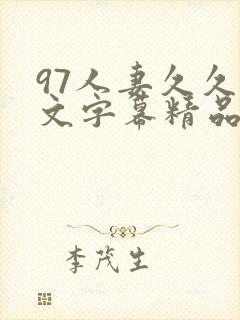 97人妻久久
文字幕精品
李茂生